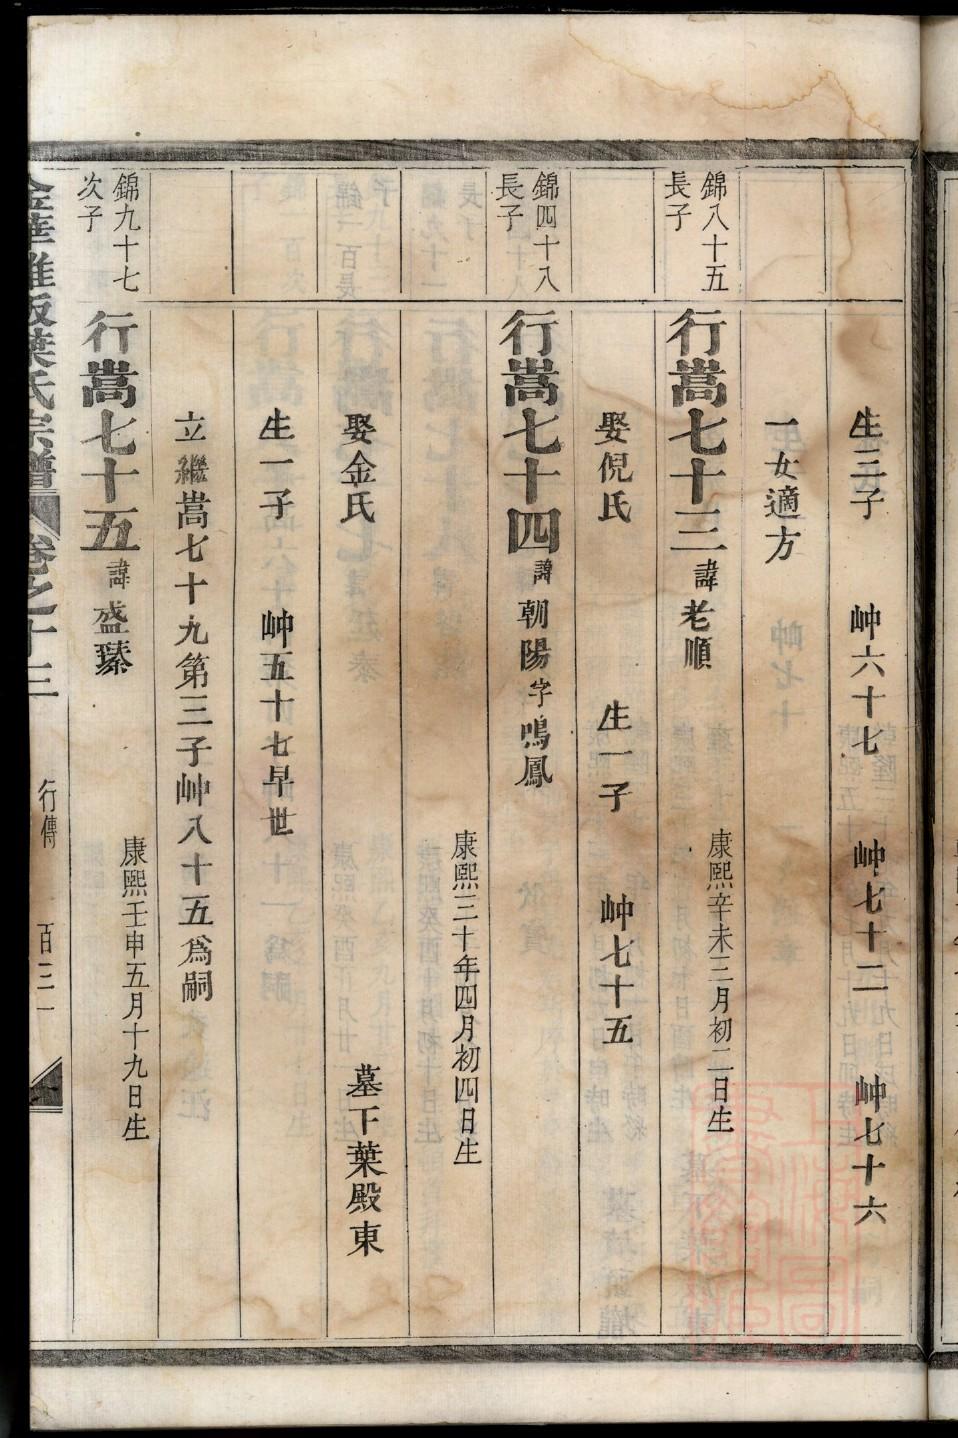 生三子　岫六十七　岫七十二　岫七十六
一女適方
錦八十五
長子
行嵩七十三諱老順　康熙辛未三月初二日生
娶倪氏　生一子　岫七十五
錦四十八
長子
行嵩七十四諱朝陽字鳴鳳
康熙三十年四月初四日生
娶金氏　墓下葉殿東
生一子　岫五十七早世
立繼嵩七十九第三子岫八十五爲嗣
錦九十七
次子
行嵩七十五諱盛臻　康熙壬申五月十九日生
葉氏宗譜　卷之十三　行傳　百三一